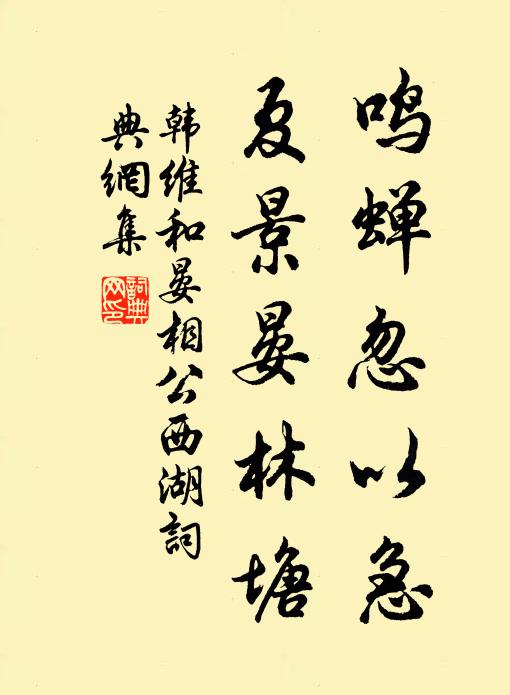 鸣蝉忽以急
夏景晏林塘
韩维和晏相公西湖詞
典網集
詞典
网印